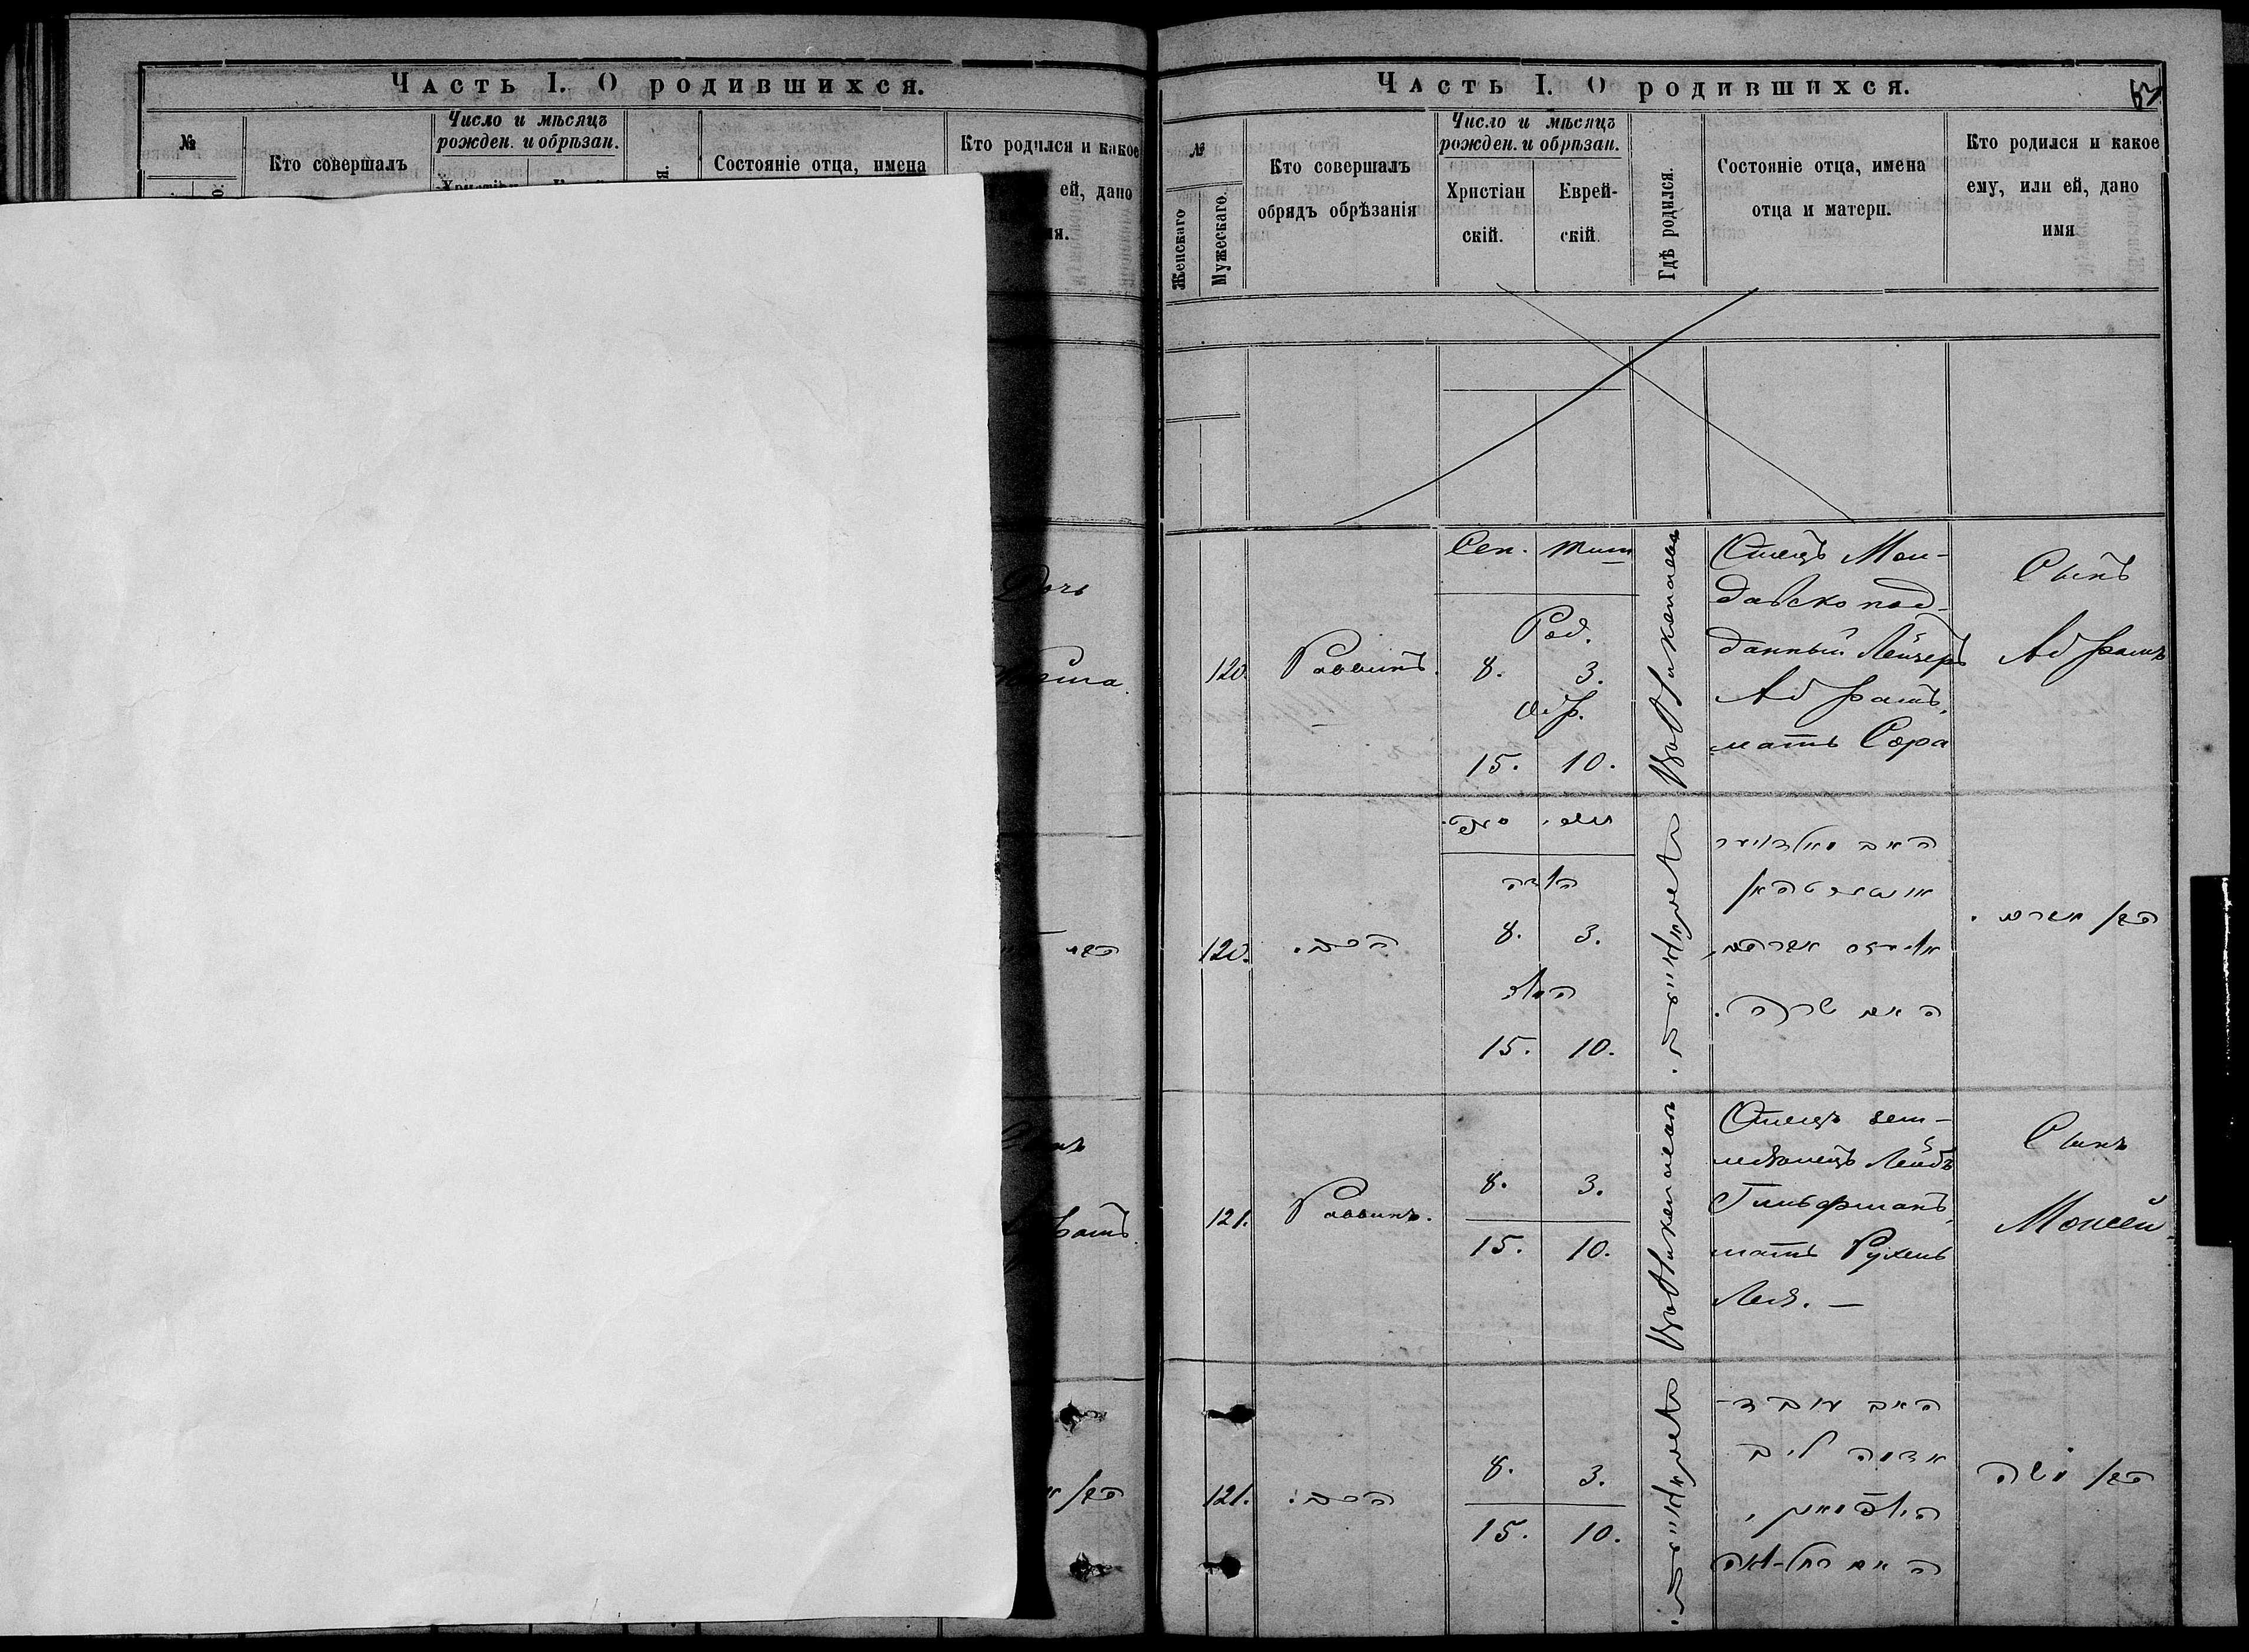 Часть I. О родившихся.
№
Кто совершалъ
Число и мѣсяцъ
рожден. и обрѣзан.
Состояніе отца, имена
Кто родился и какое
ей, дано
Дочь
Сынъ
Часть I. О родившихся.
№
Женскаго
Мужескаго.
Кто совершалъ
обрядъ обрѣзанія
Число и мѣсяцъ
рожден. и обрѣзан.
Христіан
скій.
Еврей-
скій.
Гдѣ родился.
Состояніе отца, имена
отца и матери.
Кто родился и какое
ему, или ей, дано
имя
120.
Раввинъ.
Сен. Тиш
Род.
8. 3.
Обр.
15. 10.
Въ Николаевѣ
Отецъ Мол-
давско под-
данный Лейзеръ
Абрамъ,
мать Сора
Сынъ
Абрамъ
120.
הרב.
הולדה
8. 3.
המול
15. 10.
האם שרה.
הבן אברם.
121.
Раввинъ.
8. 3.
15. 10.
Въ Николаевѣ
Отецъ зем-
ледѣлецъ Лейбъ
Гильфманъ,
мать Рухель
Лея. —
Сынъ
Моисей
121.
הרב.
8. 3.
15. 10.
האב עובד-
אדמה ליב
הילפמאן,
האם רחל-לאה
הבן משה